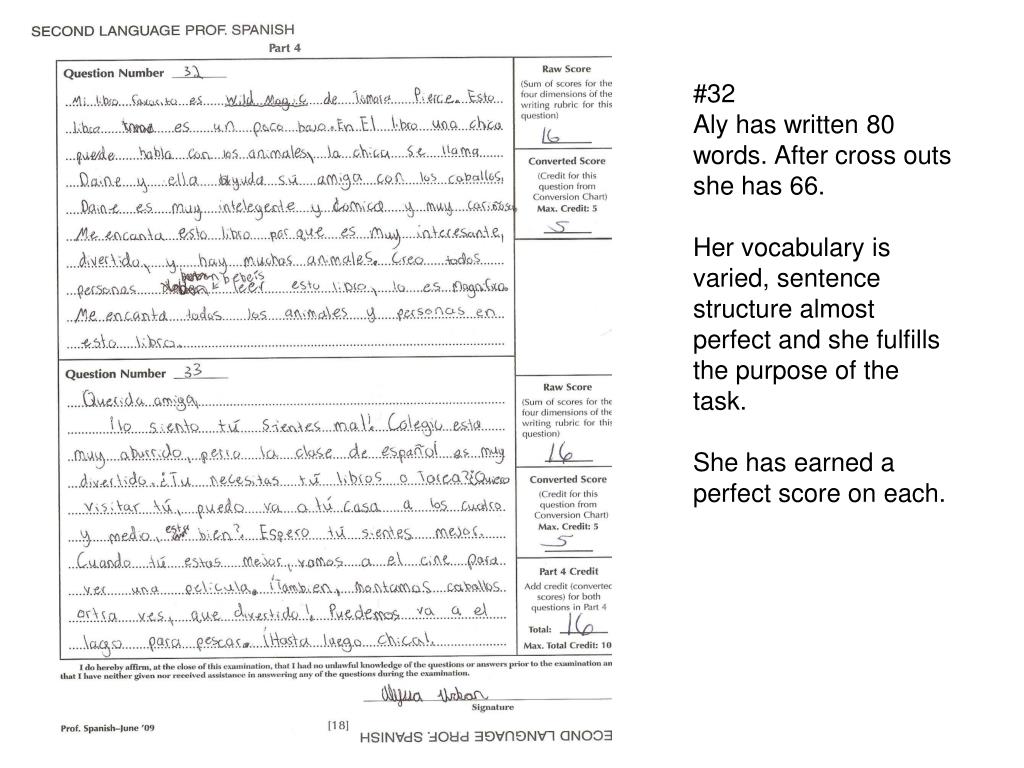 SECOND LANGUAGE PROF. SPANISH
Part 4
Question Number 32
Mi libro favorito es Wild Magic de Tamara Pierce. Esto
libro es un poco bajo. En El libro una chica
puede habla con los animales, la chica se llama
Daine y ella ayuda sú amiga con los caballos,
Daine es muy intelegente y comica y muy cariñosa,
Me encanta esto libro por que es muy interesante,
divertido, y hay muchas animales. Creo todos
bebeis
personas leer esto libro, lo es magnifico.
Me encanta todos los animales y personas en
esto libro.
Raw Score
(Sum of scores for the
four dimensions of the
writing rubric for this
question)
16
Converted Score
(Credit for this
question from
Conversion Chart)
Max. Credit: 5
5
Question Number 33
Querida amiga,
¡lo siento tú sientes mal! Colegio esta
muy aburrido, perro la clase de español es muy
divertido. ¿Tu necesitas tú libros o Tarea? ¿Quiero
visitar tú, puedo va a tú casa a los cuatro
y medio, esta bien? Espero tú sientes mejor.
Cuando tú estas mejor, vamos a el cine para
ver una pelicula. ¡Tambien, montamos caballos
ortra ves, que divertido! Puedemos va a el
lago para pescar. ¡Hasta luego chica!.
Raw Score
(Sum of scores for the
four dimensions of the
writing rubric for this
question)
16
Converted Score
(Credit for this
question from
Conversion Chart)
Max. Credit: 5
5
Part 4 Credit
Add credit (converted
scores) for both
questions in Part 4
Total: 16
Max. Total Credit: 10
I do hereby affirm, at the close of this examination, that I had no unlawful knowledge of the questions or answers prior to the examination an
that I have neither given nor received assistance in answering any of the questions during the examination.
Alyssa Urban
Signature
Prof. Spanish–June '09
[18]
ECOND LANGUAGE PROF. SPANISH
#32
Aly has written 80
words. After cross outs
she has 66.
Her vocabulary is
varied, sentence
structure almost
perfect and she fulfills
the purpose of the
task.
She has earned a
perfect score on each.